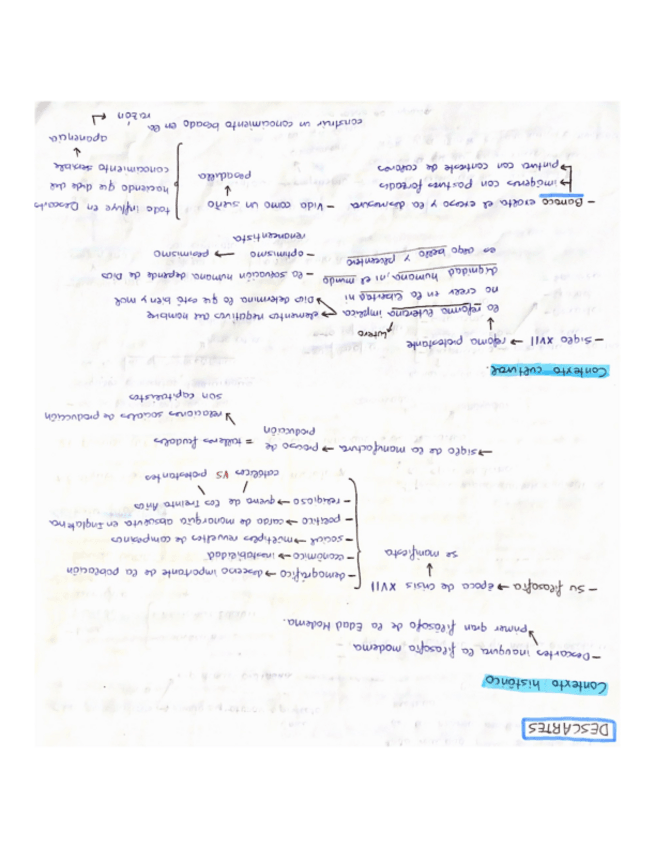 DESCARTES
Contexto histórico
- Descartes inaugura la filosofía moderna
primer gran filósofo de la Edad Moderna.
- Su filosofía → época de crisis XVII
↓
se manifiesta
- demográfico → descenso importante de la población
- económico → inestabilidad
- social → múltiples revueltas de campesinos
- político → caída de monarquía absoluta en Inglaterra
- religioso → guerra de los Treinta Años
católicos VS protestantes
→ siglo de la manufactura → proceso de = talleres feudales
producción
relaciones sociales de producción
son capitalistas
Contexto cultural.
- Siglo XVII → reforma protestante
Lutero
la reforma luterana implica → elementos negativos del hombre
no creer en la libertad ni → Dios determina lo que está bien y mal
dignidad humana, ni el mundo - la salvación humana depende de Dios
es algo bello y placentero - optimismo → pesimismo
renacentista
- Barroco exalta el exceso y la desmesura - Vida como un sueño
→ imágenes con posturas forzadas
→ pintura con contraste de colores
pesadilla
todo influye en Descartes
haciendo que dude del
conocimiento sensible
↓
apariencia
construir un conocimiento basado en la
razón